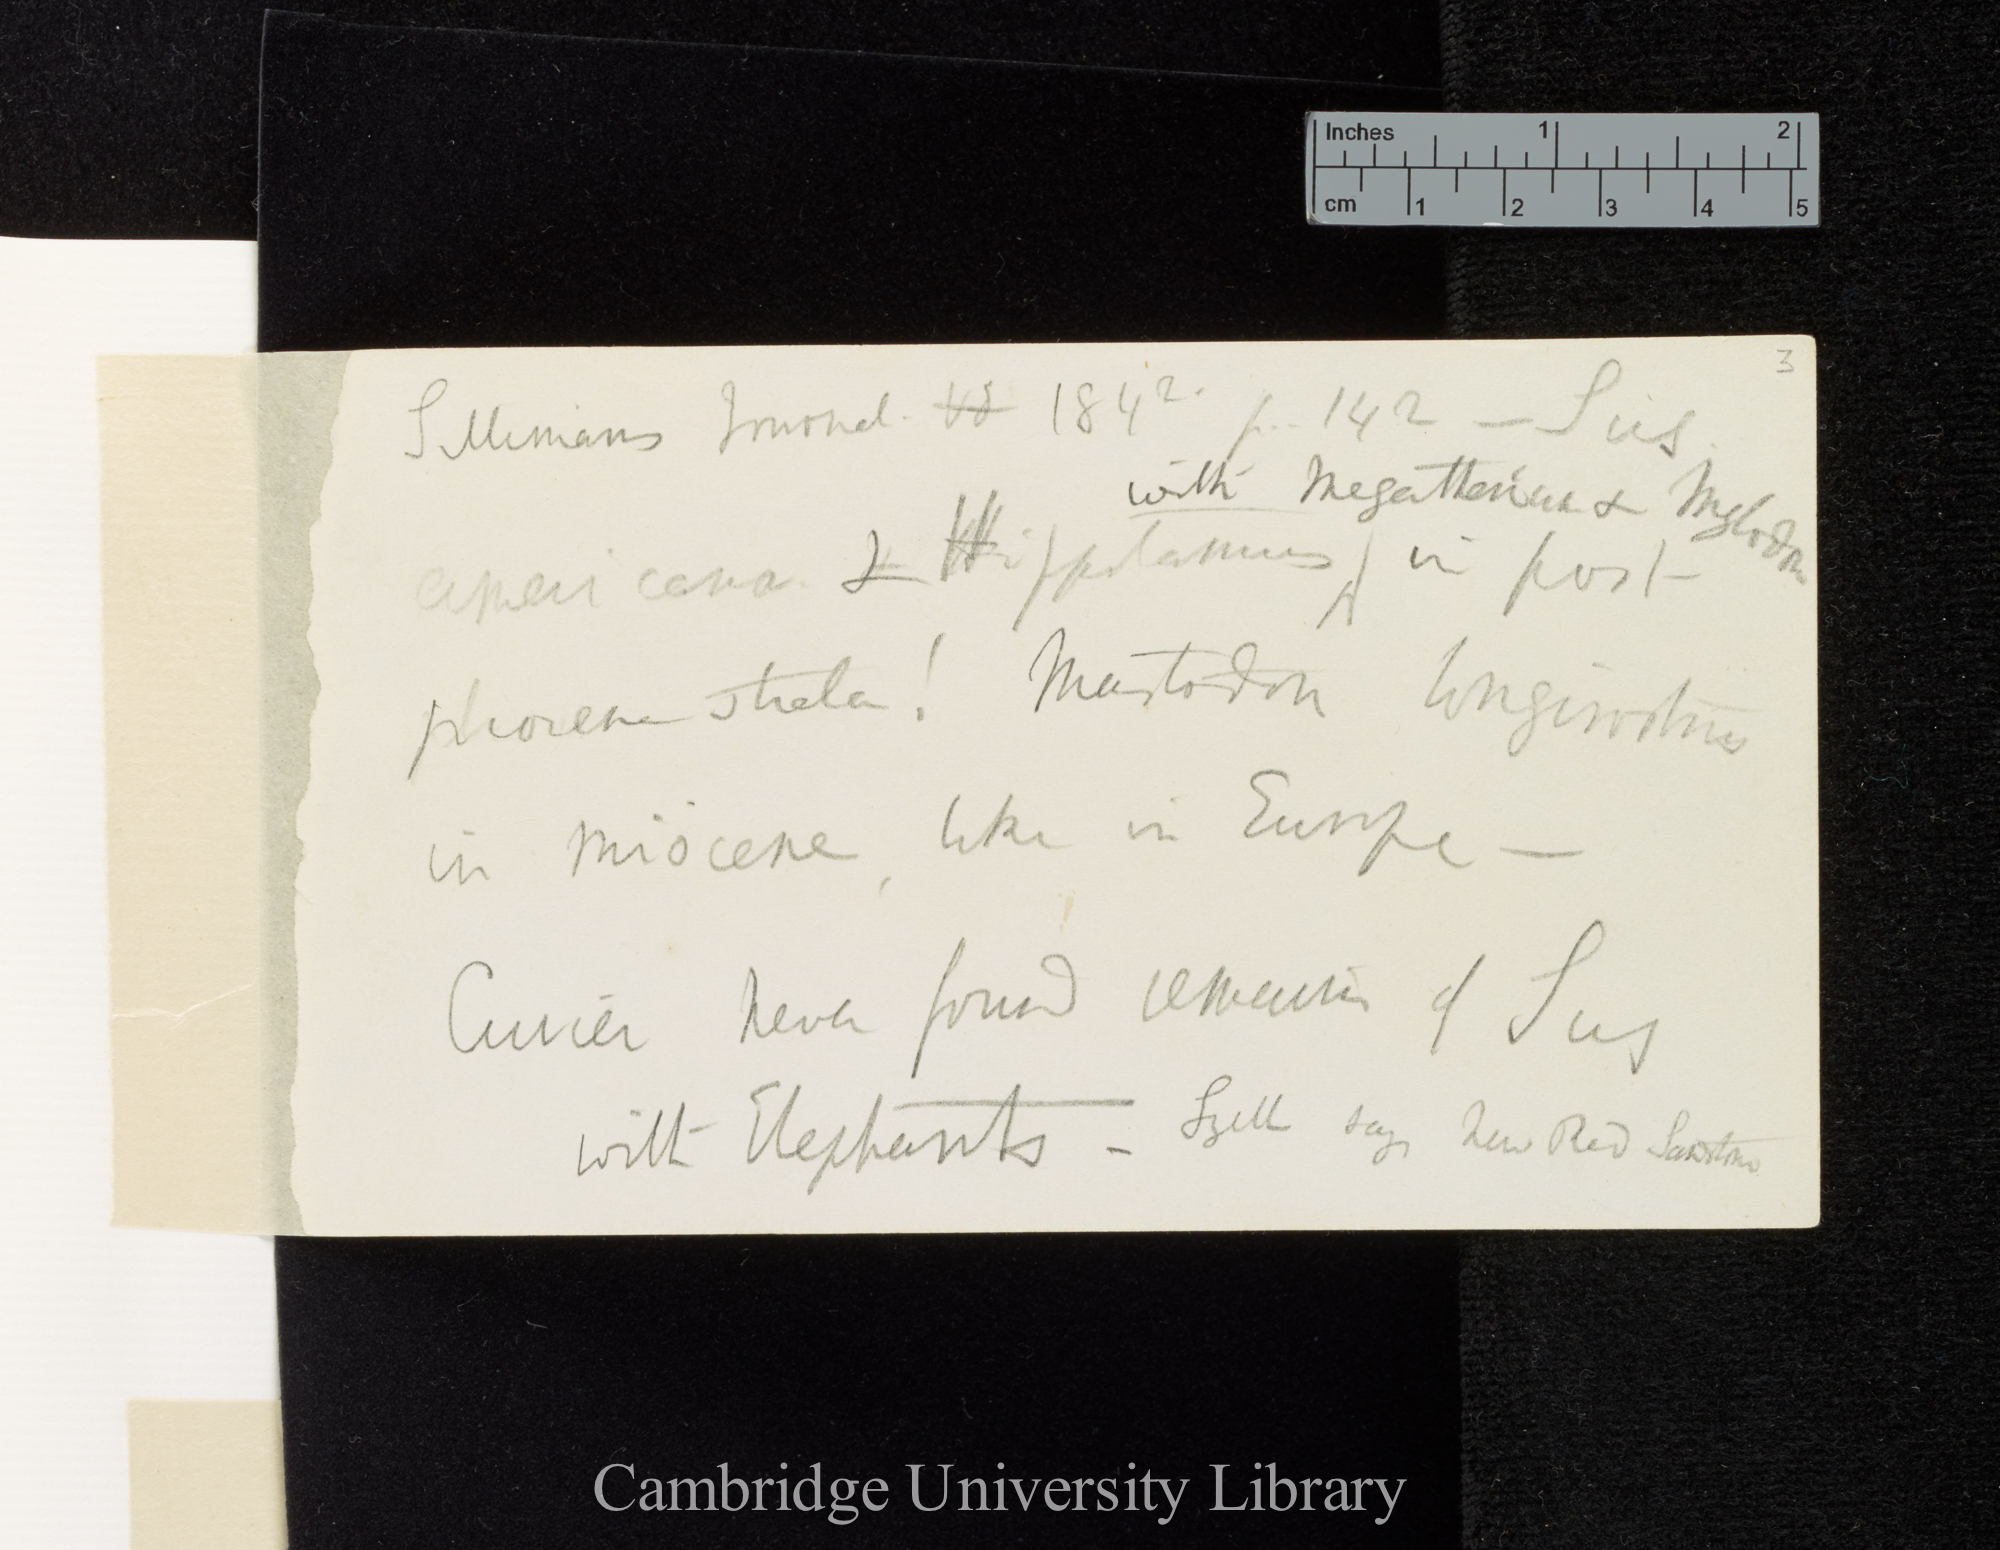 Inches 1 2
cm 1 2 3 4 5
3
Sillimans Journal. 1842. p. 142 — Sus.
with Megatherium & Mylodon
americana. & Hippotamus, in post-
pliocene strata! Mastodon longirostris
in miocene, like in Europe —
Cuvier never found remains of Sus
with Elephants — Lyell says New Red Sandstone
Cambridge University Library